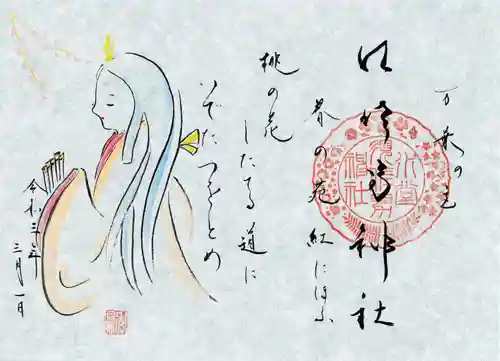 万葉の里
神社
春の苑 紅にほふ
桃の花
したてる道に
いでたつをとめ
令和三年
三月一日